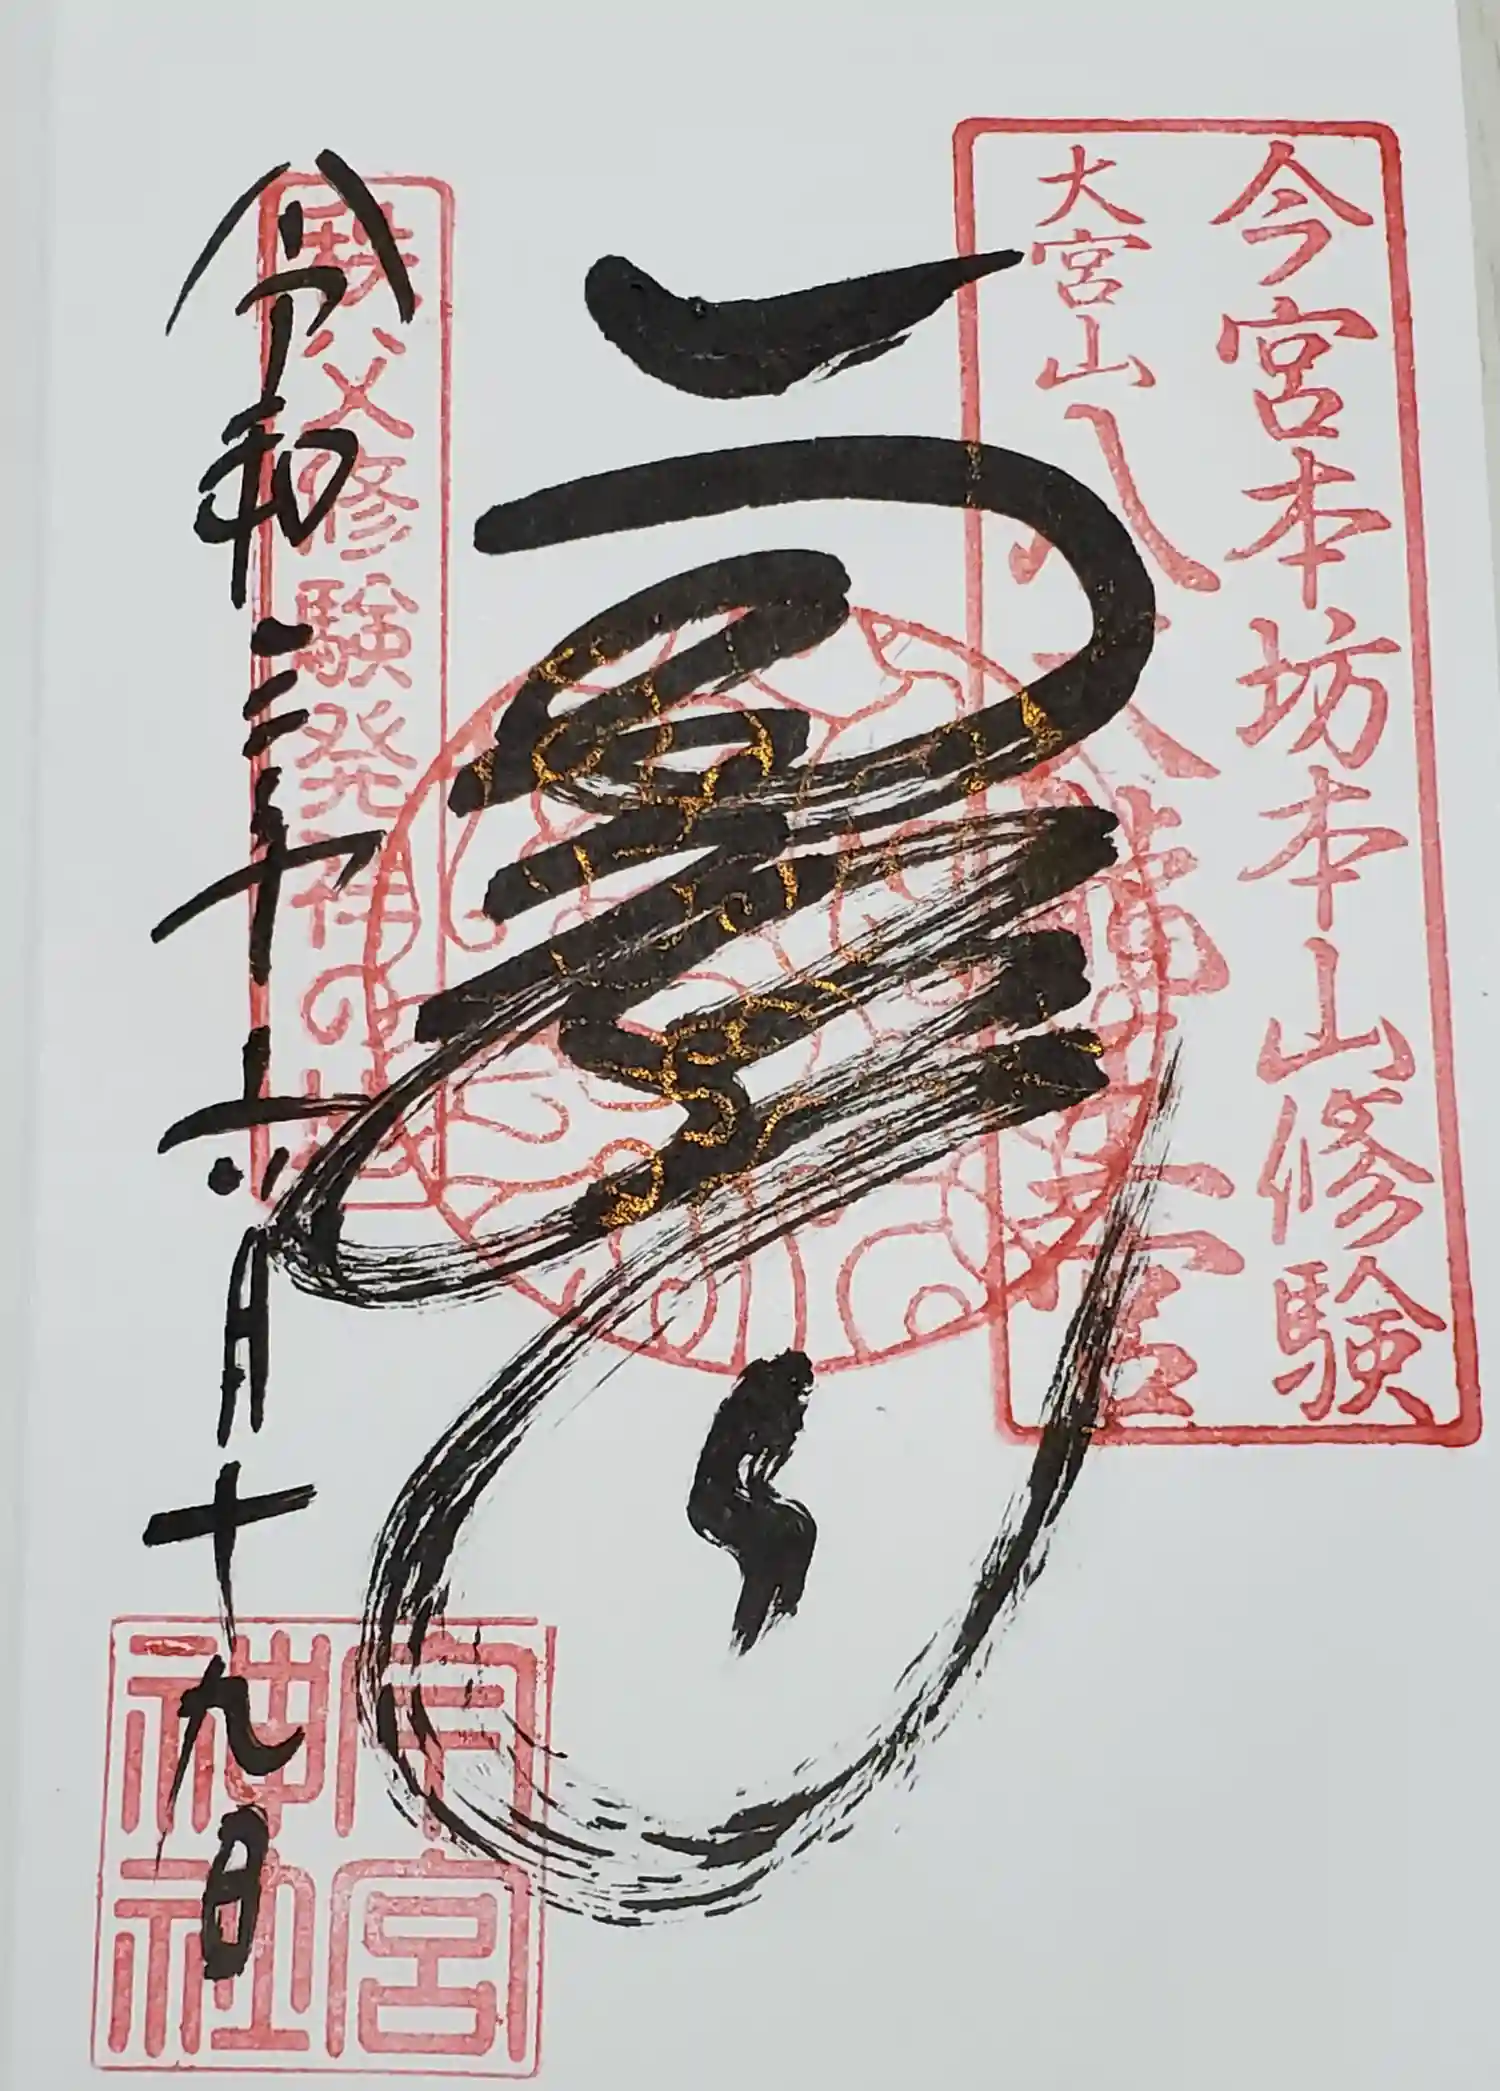 今宮本坊本山修験
大宮山八大龍王宮
令和三年六月十九日
秩父修験発祥の地
今宮神社